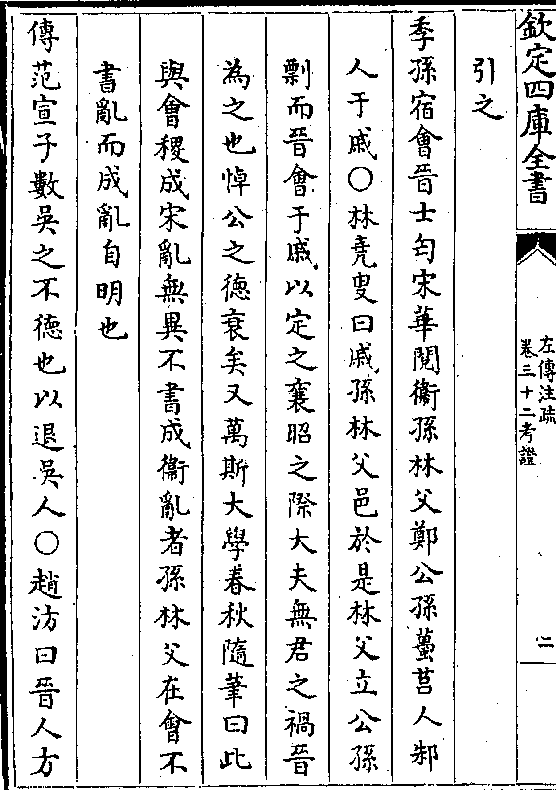 欽定四庫全書
左傳注疏
卷三十二考證
二
引之
季孫宿會晉士匄宋華閱衞孫林父鄭公孫蠆莒人邾
人于戚○林堯叟曰戚孫林父邑於是林父立公孫
剽而晉會于戚以定之襄昭之際大夫無君之禍晉
為之也悼公之德衰矣又萬斯大學春秋隨筆曰此
與會稷成宋亂無異不書成衞亂者孫林父在會不
書亂而成亂自明也
傳范宣子數吳之不德也以退吳人○趙汸曰晉人方